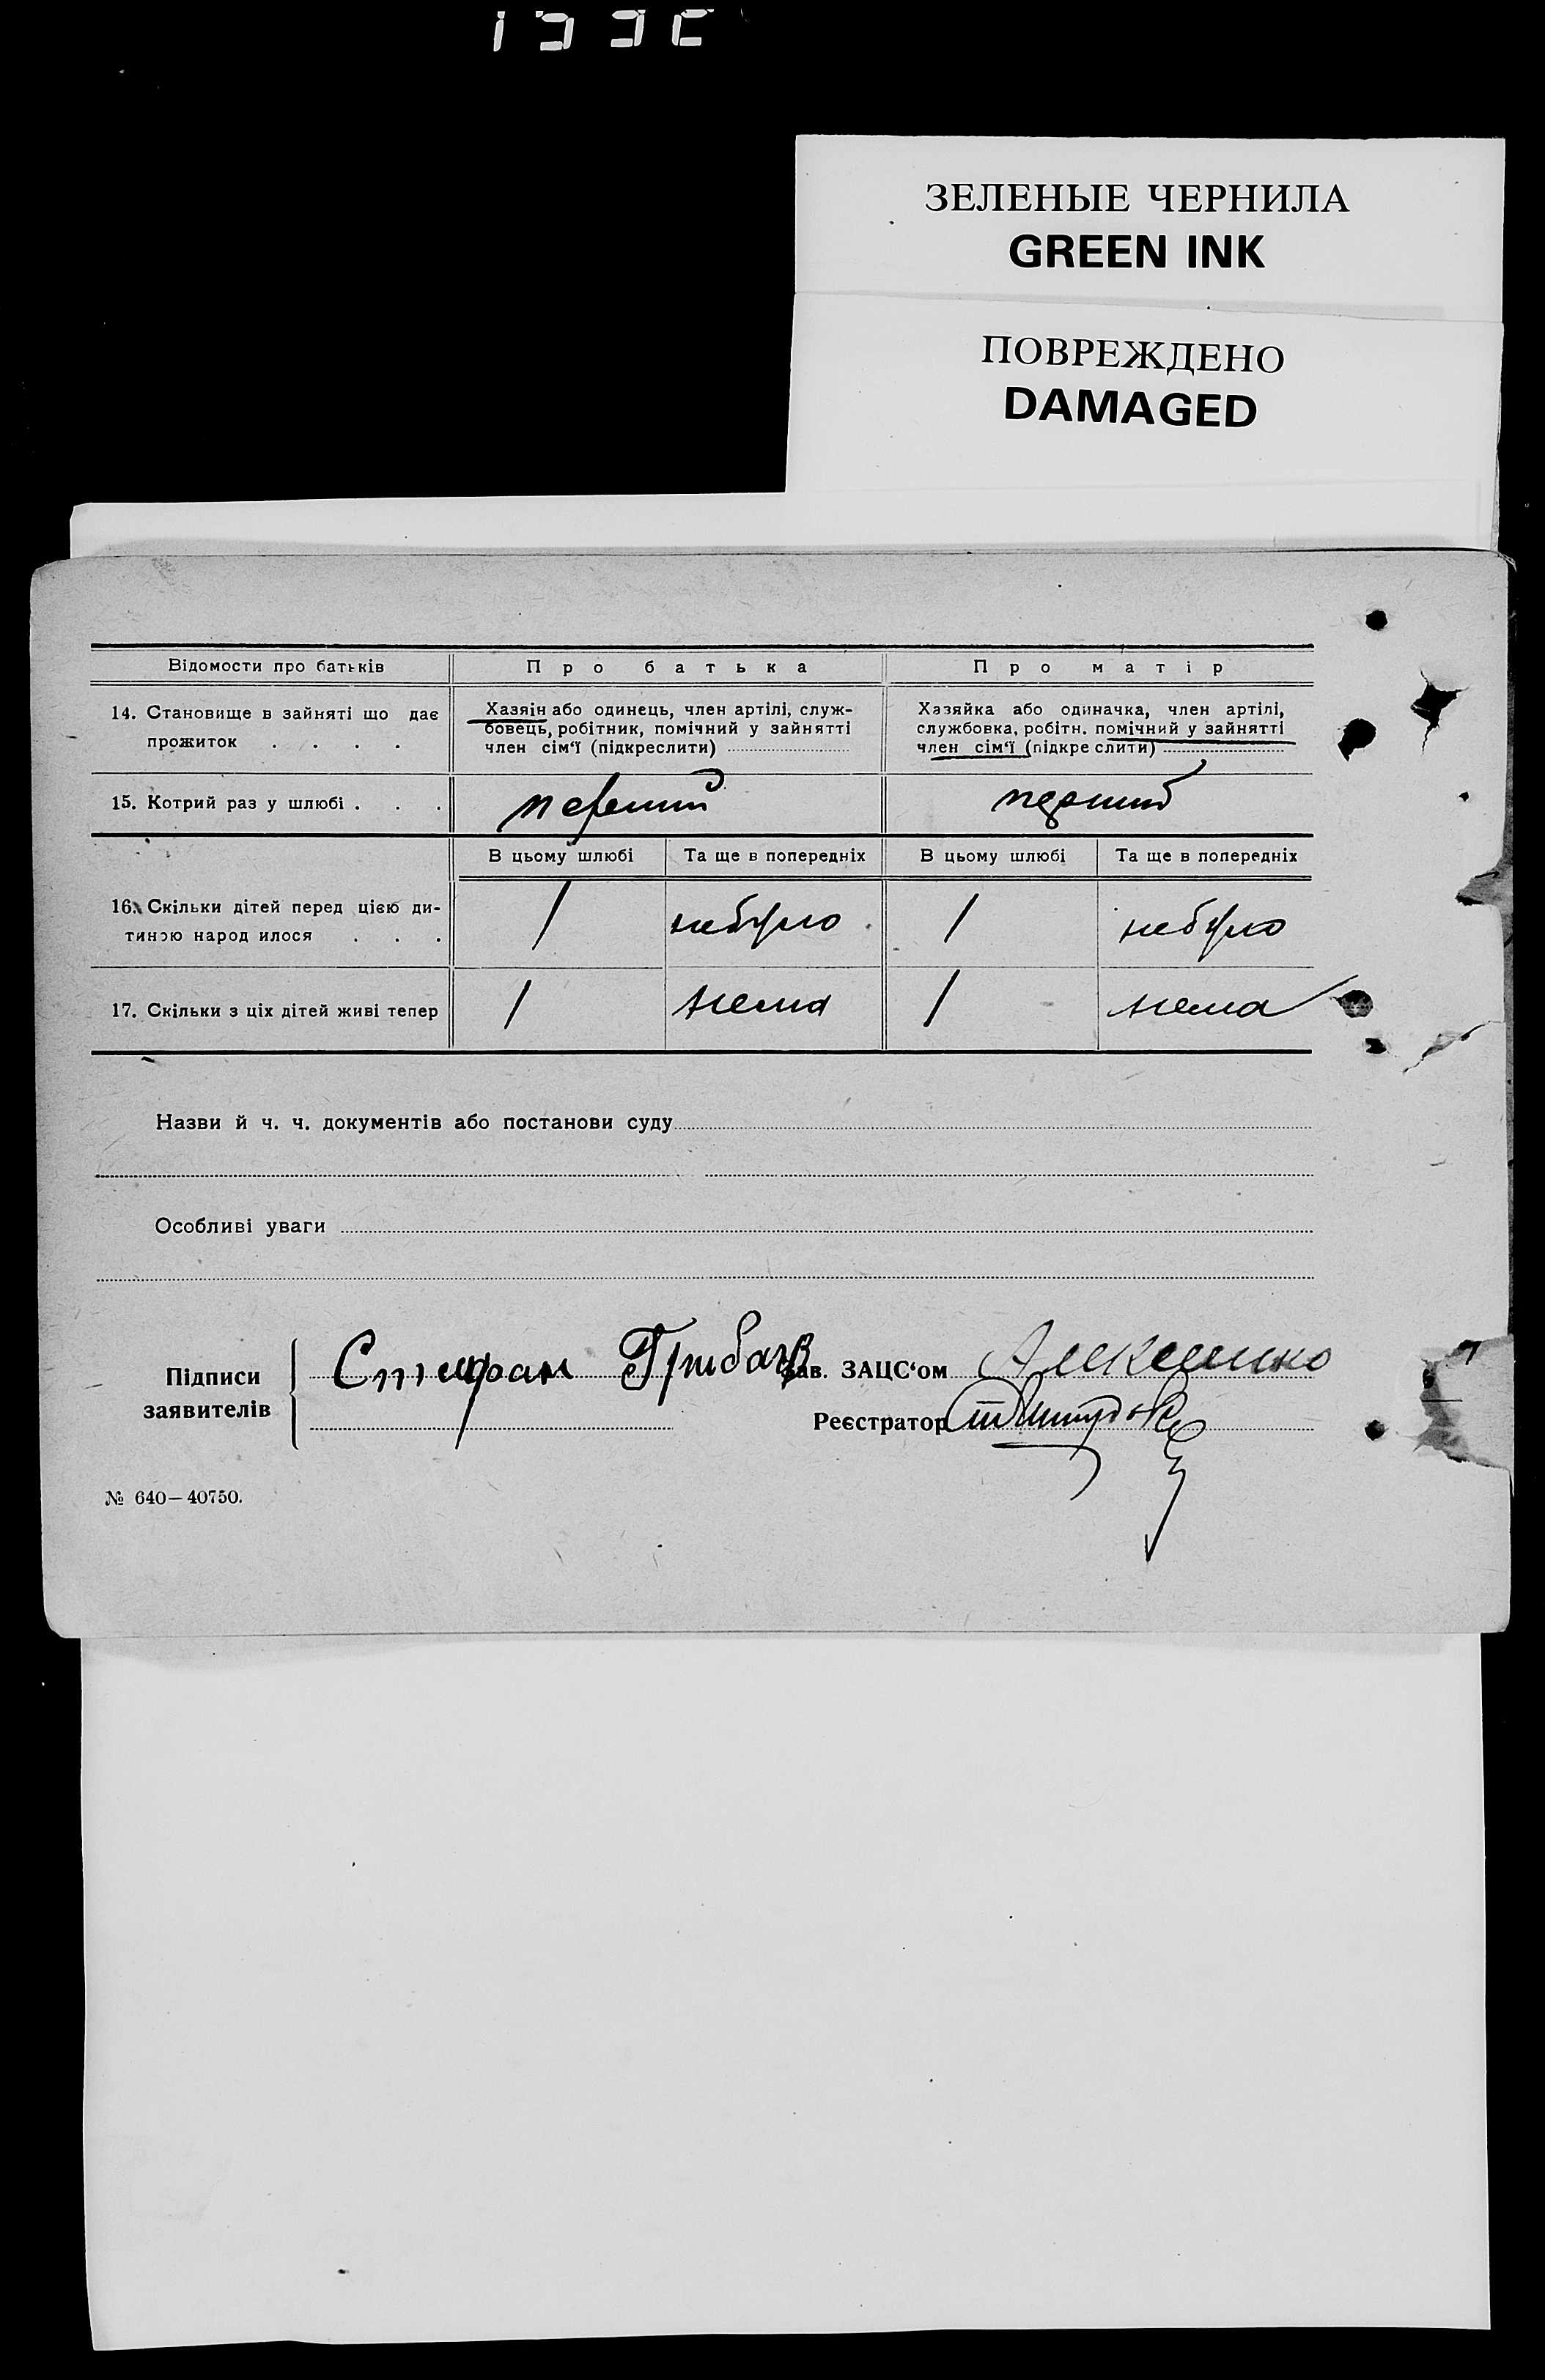 ЗЕЛЕНЫЕ ЧЕРНИЛА
GREEN INK
ПОВРЕЖДЕНО
DAMAGED
Відомости про батьків
Про батька
Про матір
14. Становище в зайняті що дає
прожиток . . . .
Хазяін або одинець, член артілі, служ-
бовець, робітник, помічний у зайнятті
член сім‘ї (підкреслити)
Хазяйка або одиначка, член артілі,
службовка, робітн. помічний у зайнятті
член сім‘ї (підкре слити)
15. Котрий раз у шлюбі . . .
перший
перший
В цьому шлюбі
Та ще в попередніх
В цьому шлюбі
Та ще в попередніх
16. Скільки дітей перед цією ди-
тиною народ илося . . .
1
небуло
1
небуло
17. Скільки з ціх дітей живі тепер
1
нема
1
нема
Назви й ч. ч. документів або постанови суду
Особливі уваги
Підписи
заявителів
Стефан Грибач
Зав. ЗАЦС‘ом
Реєстратор
№ 640—40750.